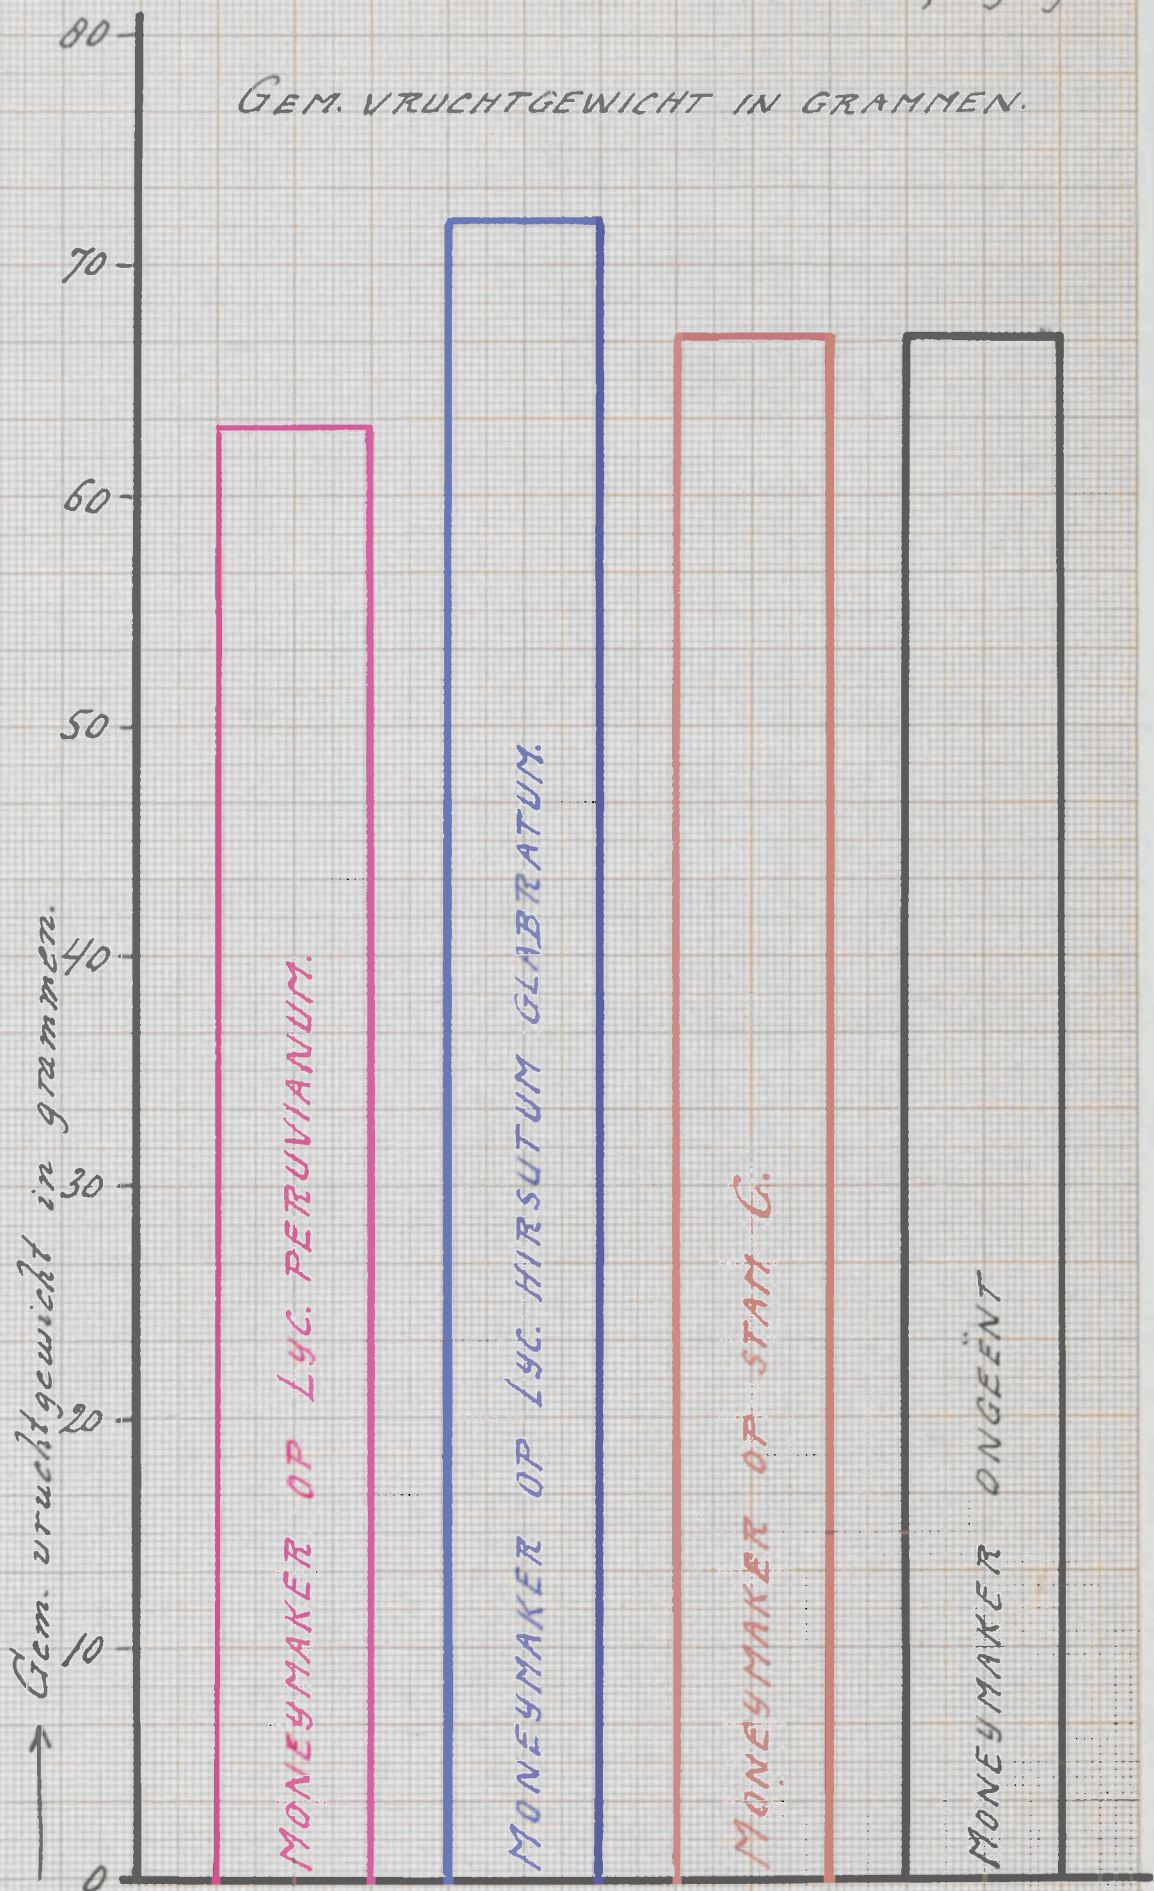 80
GEM. VRUCHTGEWICHT IN GRAMMEN.
70
60
50
40
30
20
10
0
Gem. vruchtgewicht in grammen.
MONEYMAKER OP LYC. PERUVIANUM.
MONEYMAKER OP LYC. HIRSUTUM GLABRATUM.
MONEYMAKER OP STAM G.
MONEYMAKER ONGEËNT